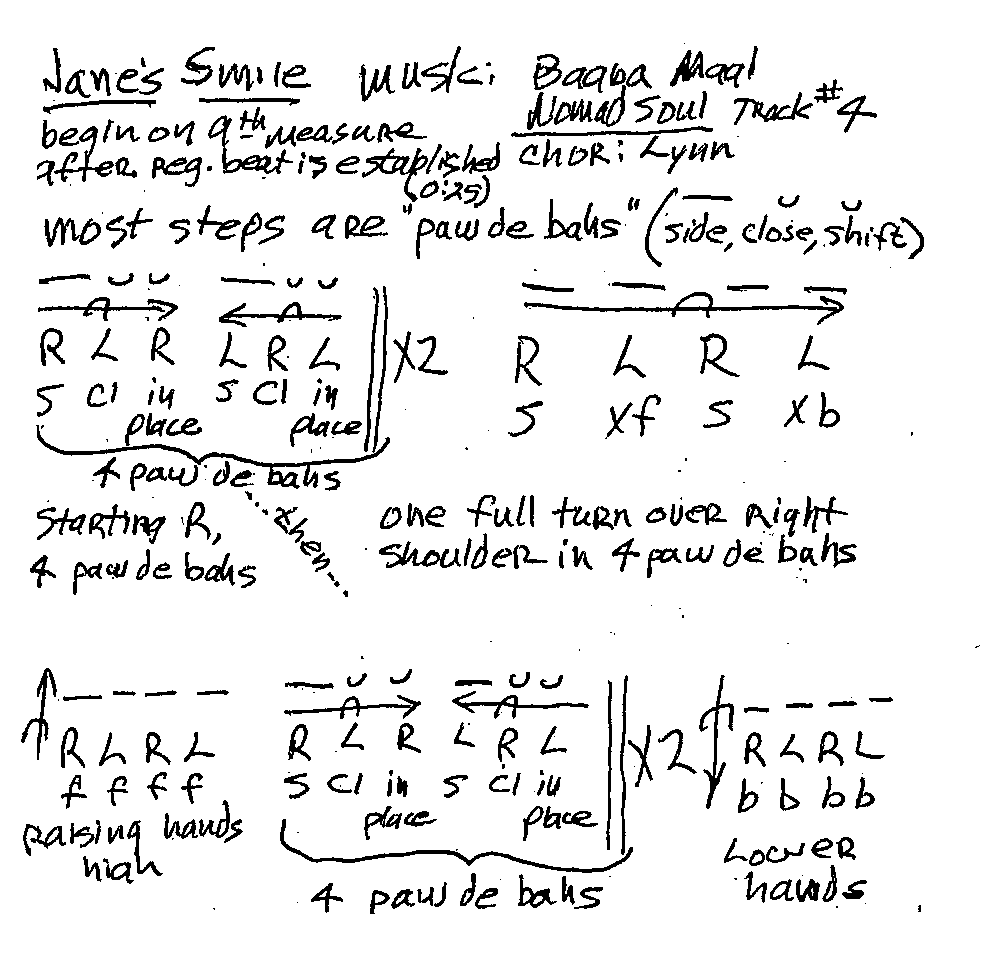 Jane's Smile music: Baaba Maal
Nomad Soul Track #4
begin on 9th measure
after reg. beat is established
(0:25)
Chor: Lynn
most steps are "paw de bahs" (side, close, shift)
R L R L R L X2 R L R L
S Cl in S Cl in S xf S xb
place place
4 paw de bahs
Starting R,
4 paw de bahs
...then...
one full turn over right
shoulder in 4 paw de bahs
R L R L R L R L R L X2 R L R L
f f f f S Cl in S Cl in b b b b
place place
raising hands
high
4 paw de bahs
Lower
hands